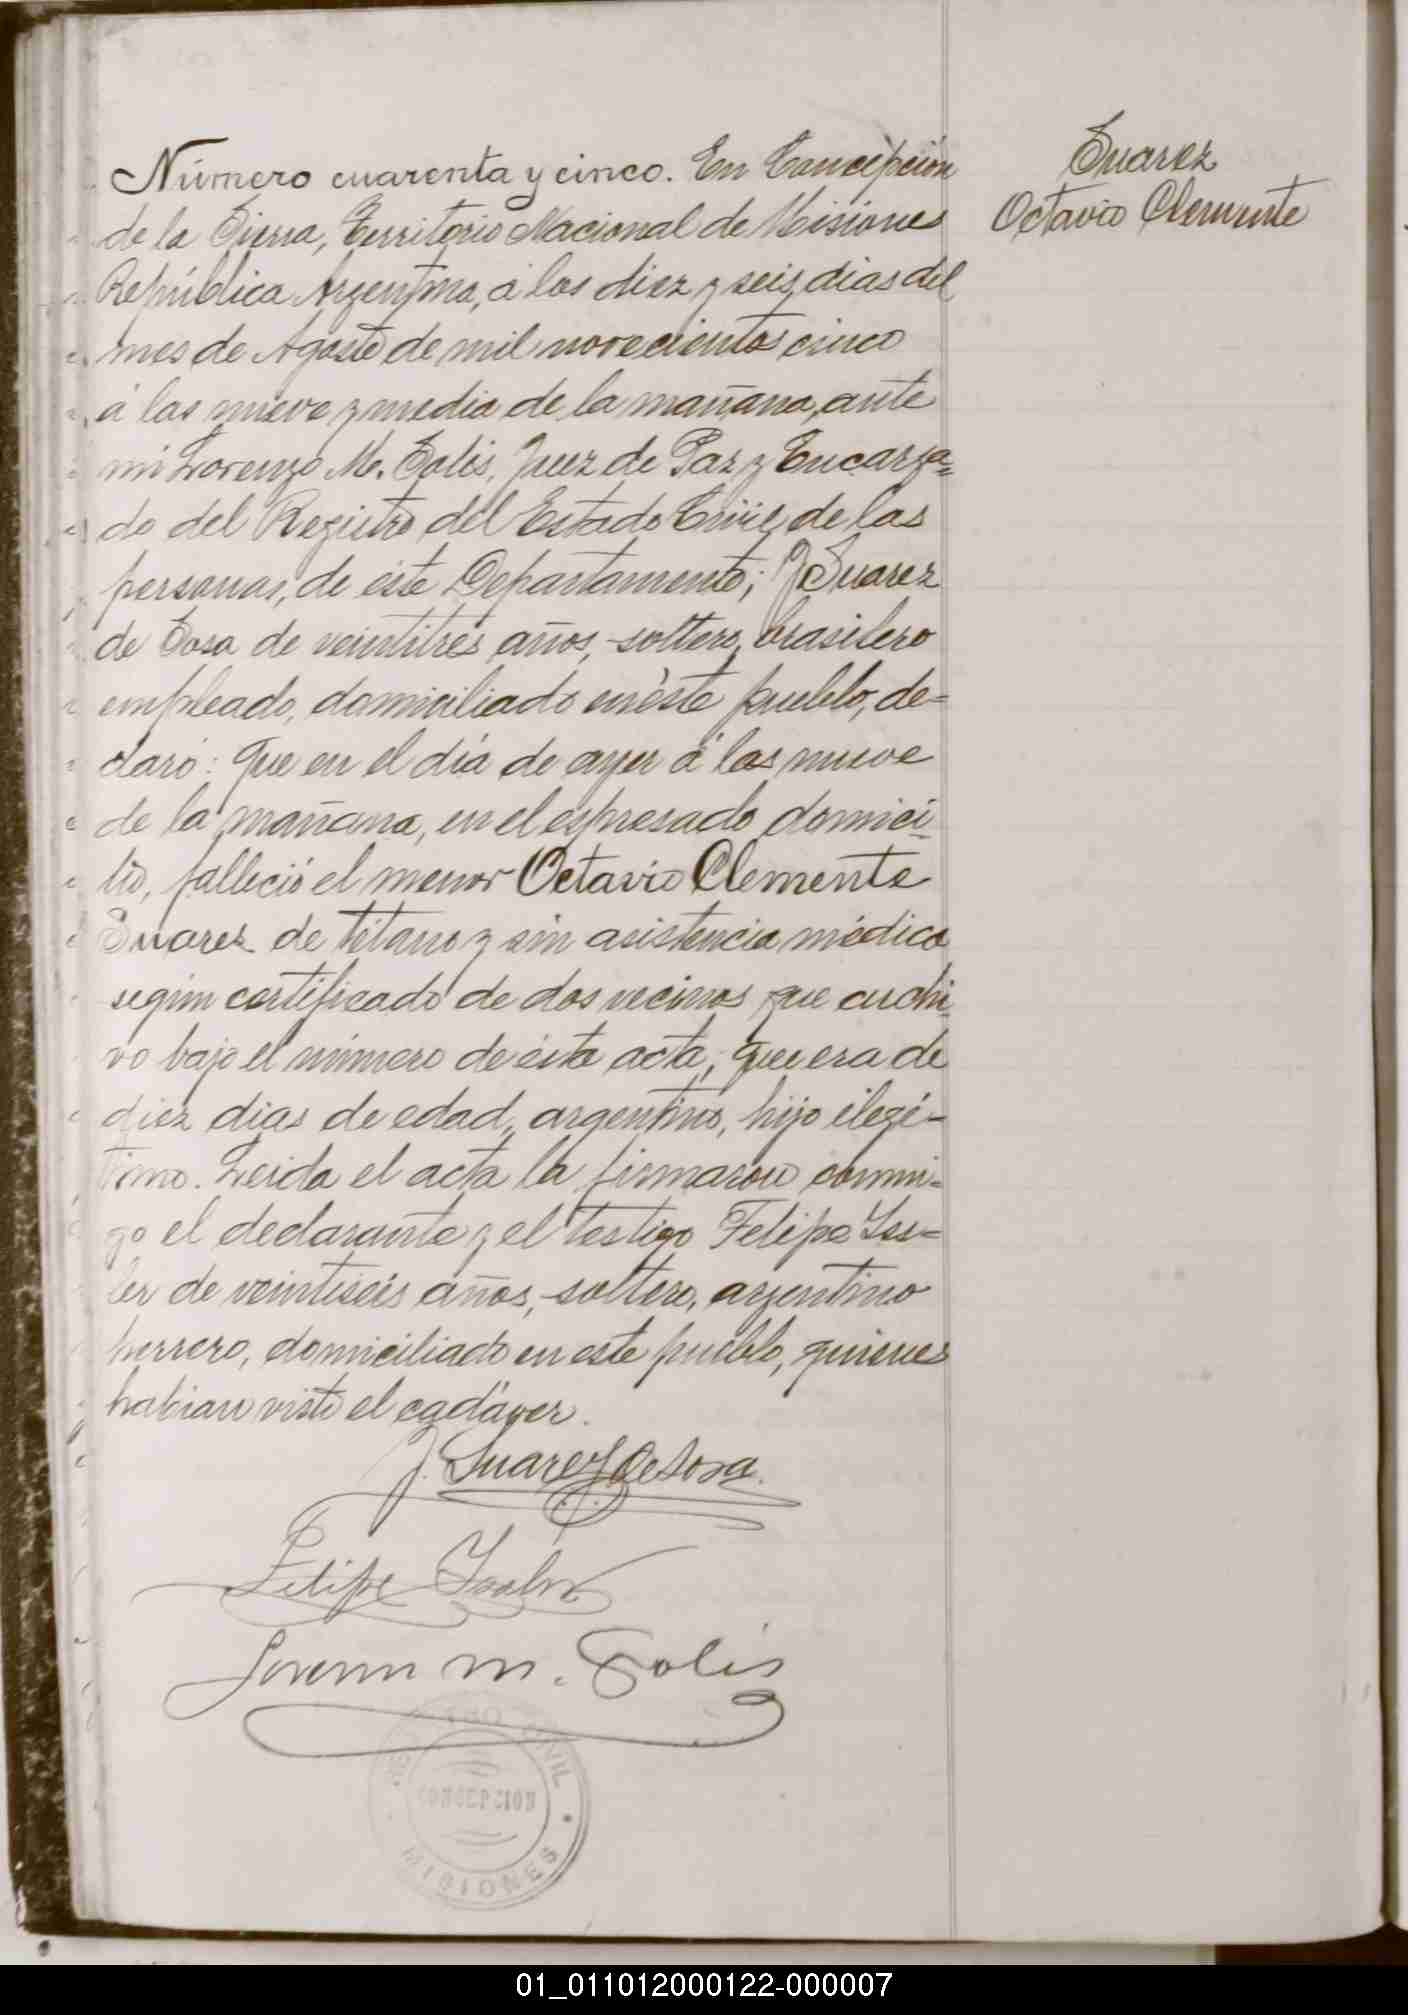 Suarez
Octavio Clemente
Número cuarenta y cinco. En Concepción
de la Sierra, Territorio Nacional de Misiones
República Argentina, á los diez y seis dias del
mes de Agosto de mil novecientos cinco
á las nueve y media de la mañana, ante
mi Lorenzo M. Solis, Juez de Paz y Encarga=
do del Registro del Estado Civil, de las
personas, de éste Departamento; J. Suarez
de Sosa de veintitres años, soltero, brasilero
empleado, domiciliado en éste pueblo, de=
claró: Que en el día de ayer á las nueve
de la mañana, en el espresado domici-
lio, falleció el menor Octavio Clemente
Suarez de tétano y sin asistencia médica
segun certificado de dos vecinos que archi-
vo bajo el número de ésta acta; que era de
diez dias de edad, argentino, hijo ilegí=
timo. Leida el acta la firmaron conmi=
go el declarante y el testigo Felipe Iss=
ler de veintiseis años, soltero, argentino
herrero, domiciliado en este pueblo, quienes
habian visto el cadáver.
J. Suarez de Sosa.
Felipe
Lorenzo M. Solis
REGISTRO CIVIL
CONCEPCION
MISIONES
01_011012000122-000007